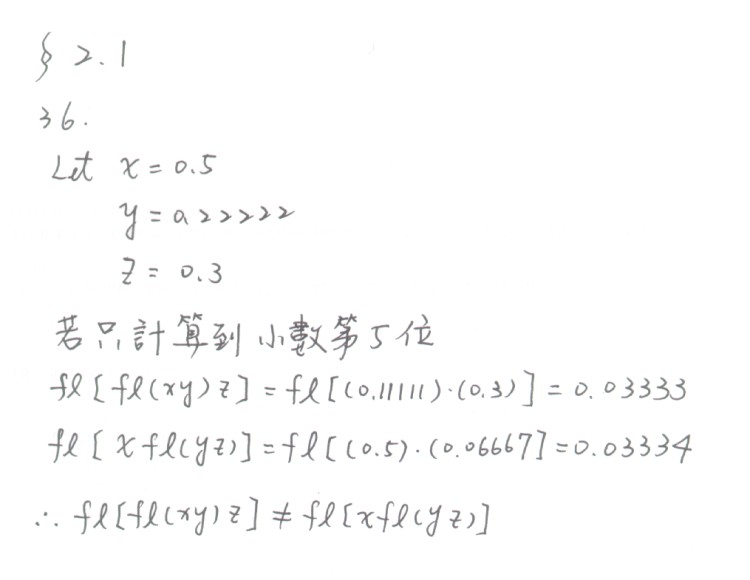 § 2.1
36.
Let x = 0.5
y = 0.22222
z = 0.3
若只計算到小數第5位
fl[fl(xy)z] = fl[(0.11111)·(0.3)] = 0.03333
fl[xfl(yz)] = fl[(0.5)·(0.06667] = 0.03334
∴ fl[fl(xy)z] ≠ fl[xfl(yz)]